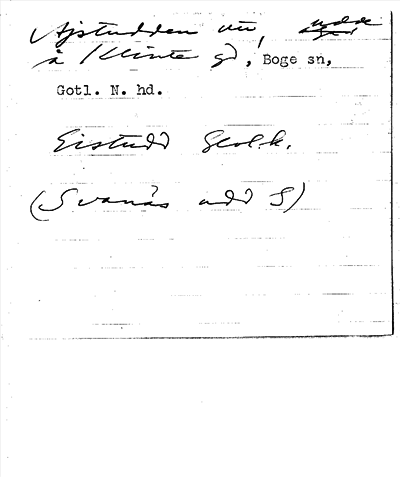 Ajstudden nu, udde
å Klinte gd, Boge sn,
Gotl. N. hd.
Eistudd Geol.k.
(Svanäs udd S)